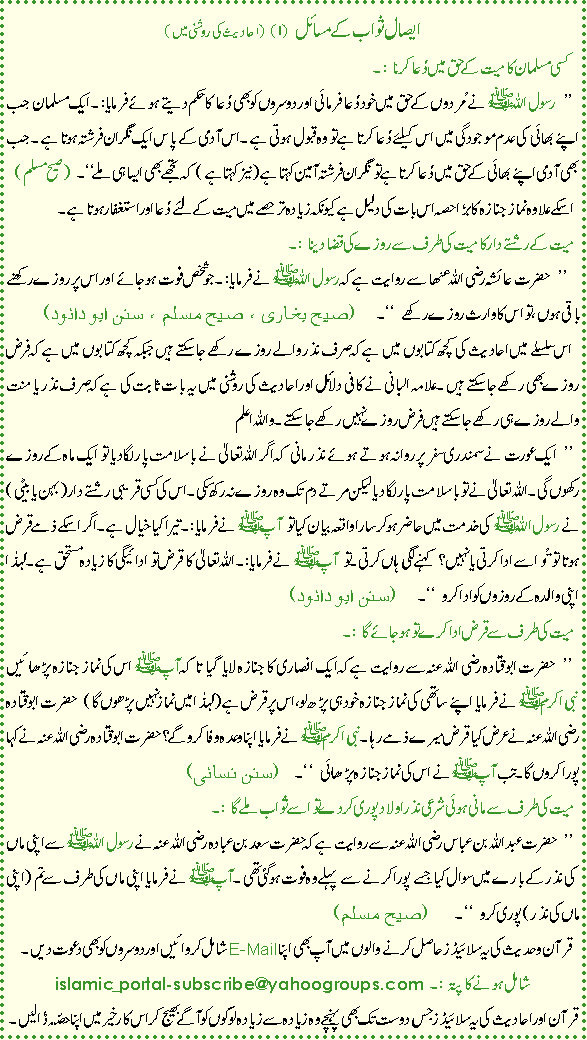 ایصال ثواب کے مسائل (۱) (احادیث کی روشنی میں)
کسی مسلمان کا میت کے حق میں دُعا کرنا :۔
’’ رسول اللہ ﷺ نے مُردوں کے حق میں خود دُعا فرمائی اور دوسروں کو بھی دُعا کا حکم دیتے ہوئے فرمایا:۔ ایک مسلمان جب
اپنے بھائی کی عدم موجودگی میں اس کیلئے دُعا کرتا ہے تو وہ قبول ہوتی ہے۔ اس آدمی کے پاس ایک نگران فرشتہ ہوتا ہے۔ جب
بھی آدمی اپنے بھائی کے حق میں دُعا کرتا ہے تو نگران فرشتہ آمین کہتا ہے (نیز کہتا ہے) کہ تجھے بھی ایسا ہی ملے‘‘۔ (صحیح مسلم)
اسکے علاوہ نماز جنازہ کا بڑا حصہ اس بات کی دلیل ہے کیونکہ زیادہ تر حصے میں میت کے لئے دُعا اور استغفار ہوتا ہے۔
میت کے رشتے دار کا میت کی طرف سے روزے کی قضا دینا :۔
’’ حضرت عائشہ رضی اللہ عنھا سے روایت ہے کہ رسول اللہ ﷺ نے فرمایا:۔ جو شخص فوت ہو جائے اور اس پر روزے رکھنے
باقی ہوں تو اس کا وارث روزے رکھے ‘‘۔ (صحیح بخاری ، صحیح مسلم ، سنن ابو دائود)
اس سلسلے میں احادیث کی کچھ کتابوں میں ہے کہ صرف نذر والے روزے رکھے جا سکتے ہیں جبکہ کچھ کتابوں میں ہے کہ فرض
روزے بھی رکھے جا سکتے ہیں۔ علامہ البانی نے کافی دلائل اور احادیث کی روشنی میں یہ بات ثابت کی ہے کہ صرف نذر یا منت
والے روزے ہی رکھے جا سکتے ہیں فرض روزے نہیں رکھے جا سکتے۔ واللہ اعلم
’’ ایک عورت نے سمندری سفر پر روانہ ہوتے ہوئے نذر مانی کہ اگر اللہ تعالیٰ نے با سلامت پار لگا دیا تو ایک ماہ کے روزے
رکھوں گی۔ اللہ تعالیٰ نے تو با سلامت پار لگا دیا لیکن مرتے دم تک وہ روزے نہ رکھ سکی۔ اس کی کسی قریبی رشتے دار (بہن یا بیٹی)
نے رسول اللہ ﷺ کی خدمت میں حاضر ہو کر سارا واقعہ بیان کیا تو آپ ﷺ نے فرمایا:۔ تیرا کیا خیال ہے۔ اگر اسکے ذمے قرض
ہوتا تو تُو اسے ادا کرتی یا نہیں؟ کہنے لگی ہاں کرتی۔ تو آپ ﷺ نے فرمایا:۔ اللہ تعالیٰ کا قرض تو ادائیگی کا زیادہ مستحق ہے۔ لہٰذا
اپنی والدہ کے روزوں کو ادا کرو ‘‘۔ (سنن ابو دائود)
میت کی طرف سے قرض ادا کرے تو ہو جائے گا :۔
’’ حضرت ابو قتادہ رضی اللہ عنہ سے روایت ہے کہ ایک انصاری کا جنازہ لایا گیا تا کہ آپ ﷺ اس کی نماز جنازہ پڑھائیں
نبی اکرم ﷺ نے فرمایا اپنے ساتھی کی نماز جنازہ خود ہی پڑھ لو، اس پر قرض ہے (لہٰذا میں نماز نہیں پڑھوں گا) حضرت ابو قتادہ
رضی اللہ عنہ نے عرض کیا قرض میرے ذمے رہا۔ نبی اکرم ﷺ نے فرمایا اپنا وعدہ وفا کرو گے؟ حضرت ابو قتادہ رضی اللہ عنہ نے کہا
پورا کروں گا۔ تب آپ ﷺ نے اس کی نماز جنازہ پڑھائی ‘‘۔ (سنن نسائی)
میت کی طرف سے مانی ہوئی شرعی نذر اولاد پوری کر دے تو اسے ثواب ملے گا :۔
’’ حضرت عبداللہ بن عباس رضی اللہ عنہ سے روایت ہے کہ حضرت سعد بن عبادہ رضی اللہ عنہ نے رسول اللہ ﷺ سے اپنی ماں
کی نذر کے بارے میں سوال کیا جسے پورا کرنے سے پہلے وہ فوت ہو گئی تھی۔ آپ ﷺ نے فرمایا اپنی ماں کی طرف سے تم (اپنی
ماں کی نذر) پوری کرو ‘‘۔ (صحیح مسلم)
قرآن و حدیث کی یہ سلائیڈز حاصل کرنے والوں میں آپ بھی اپنا E-Mail شامل کروائیں اور دوسروں کو بھی دعوت دیں۔
شامل ہونے کا پتہ :۔ islamic_portal-subscribe@yahoogroups.com
قرآن اور احادیث کی یہ سلائیڈز جس دوست تک بھی پہنچے وہ زیادہ سے زیادہ لوگوں کو آگے بھیج کر اس کار خیر میں اپنا حصّہ ڈالیں۔